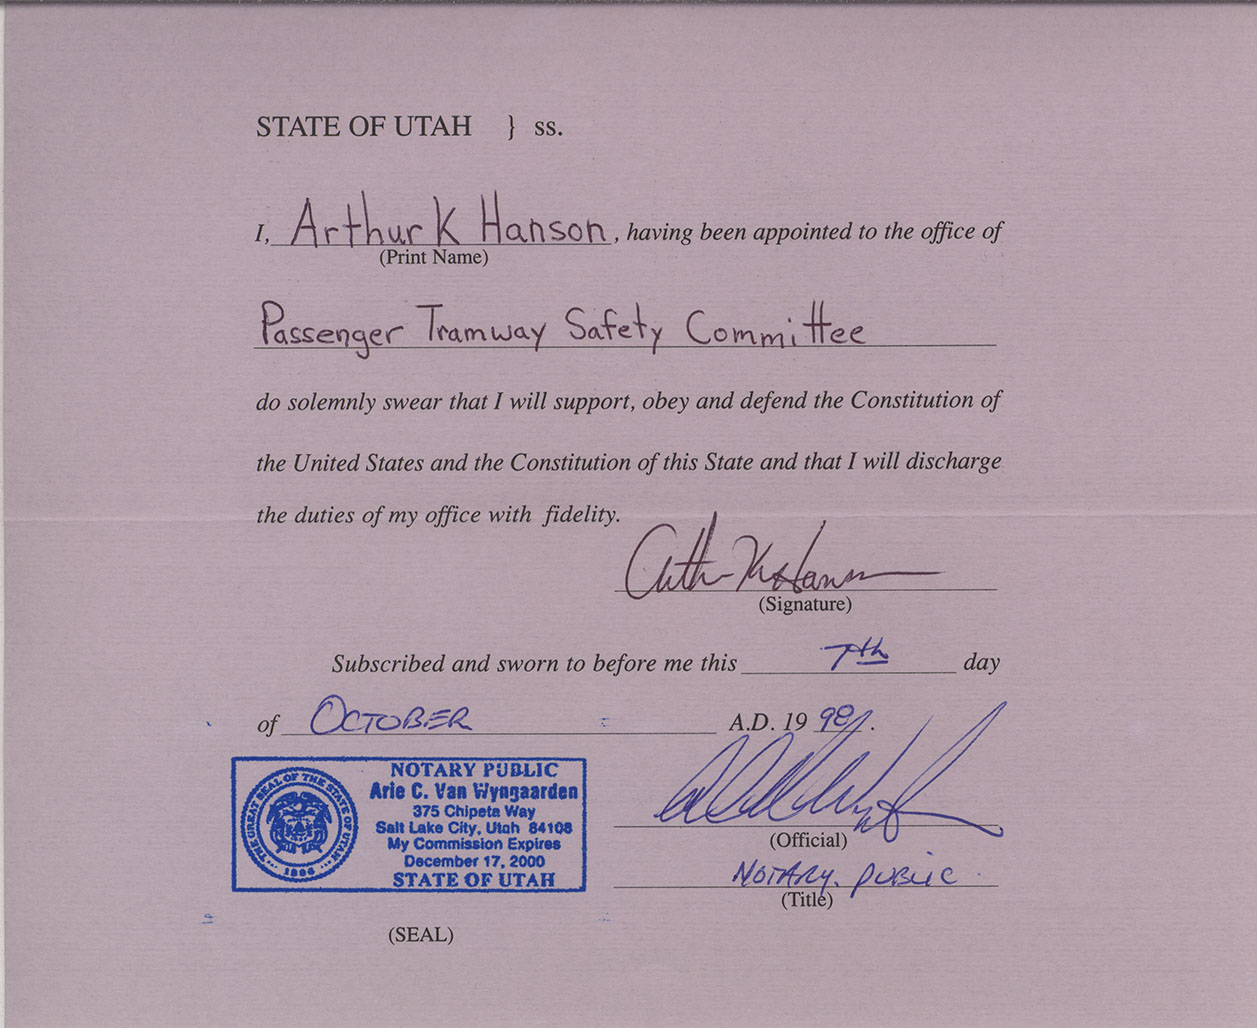 STATE OF UTAH } ss.
I, Arthur K Hanson, having been appointed to the office of
(Print Name)
Passenger Tramway Safety Committee
do solemnly swear that I will support, obey and defend the Constitution of
the United States and the Constitution of this State and that I will discharge
the duties of my office with fidelity.
Arthur K Hanson
(Signature)
Subscribed and sworn to before me this 7th day
of OCTOBER A.D. 19 98.
NOTARY PUBLIC
Arie C. Van Wyngaarden
375 Chipeta Way
Salt Lake City, Utah 84108
My Commission Expires
December 17, 2000
STATE OF UTAH
THE GREAT SEAL OF THE STATE OF UTAH
1896
(Official)
NOTARY PUBLIC
(Title)
(SEAL)